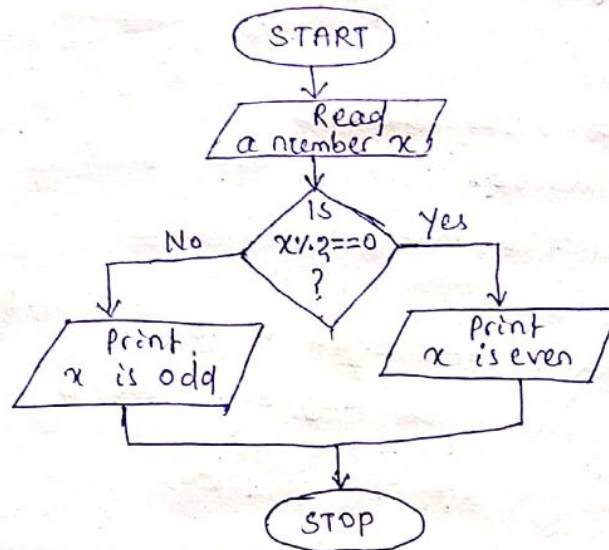 START
Read
a number x
Is
x%2==0
?
No
Yes
Print
x is odd
Print
x is even
STOP